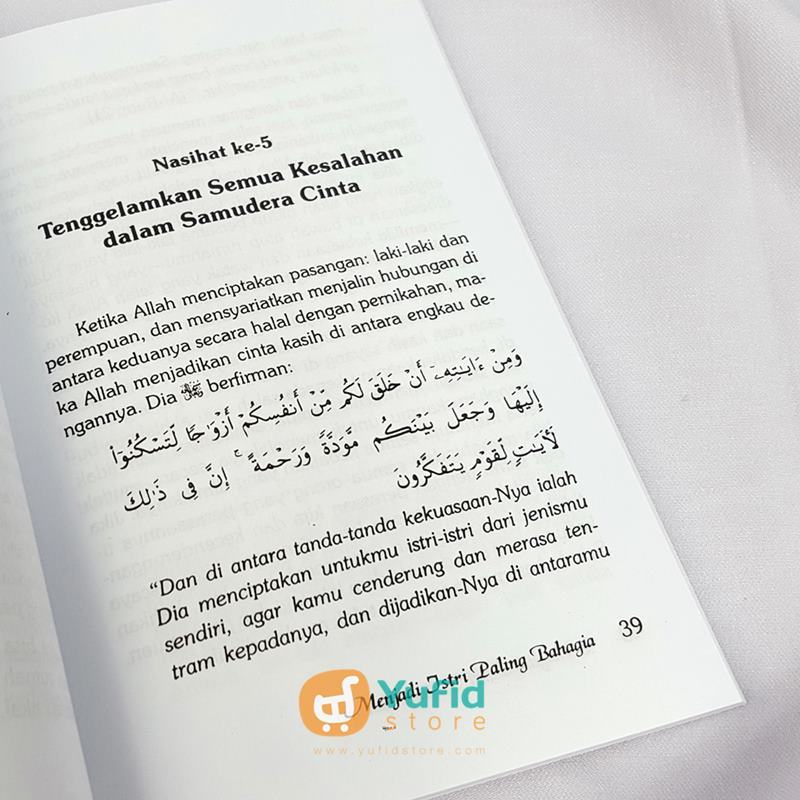 Nasihat ke-5
Tenggelamkan Semua Kesalahan
dalam Samudera Cinta
Ketika Allah menciptakan pasangan: laki-laki dan
perempuan, dan mensyariatkan menjalin hubungan di
antara keduanya secara halal dengan pernikahan, ma-
ka Allah menjadikan cinta kasih di antara engkau de-
ngannya. Dia ﷻ berfirman:
وَمِنْ ءَايَٰتِهِۦٓ أَنْ خَلَقَ لَكُم مِّنْ أَنفُسِكُمْ أَزْوَٰجًا لِّتَسْكُنُوٓا۟
إِلَيْهَا وَجَعَلَ بَيْنَكُم مَّوَدَّةً وَرَحْمَةً ۚ إِنَّ فِى ذَٰلِكَ
لَءَايَٰتٍ لِّقَوْمٍ يَتَفَكَّرُونَ
“Dan di antara tanda-tanda kekuasaan-Nya ialah
Dia menciptakan untukmu istri-istri dari jenismu
sendiri, agar kamu cenderung dan merasa ten-
tram kepadanya, dan dijadikan-Nya di antaramu
Menjadi Istri Paling Bahagia 39
Yufid
store
www.yufidstore.com